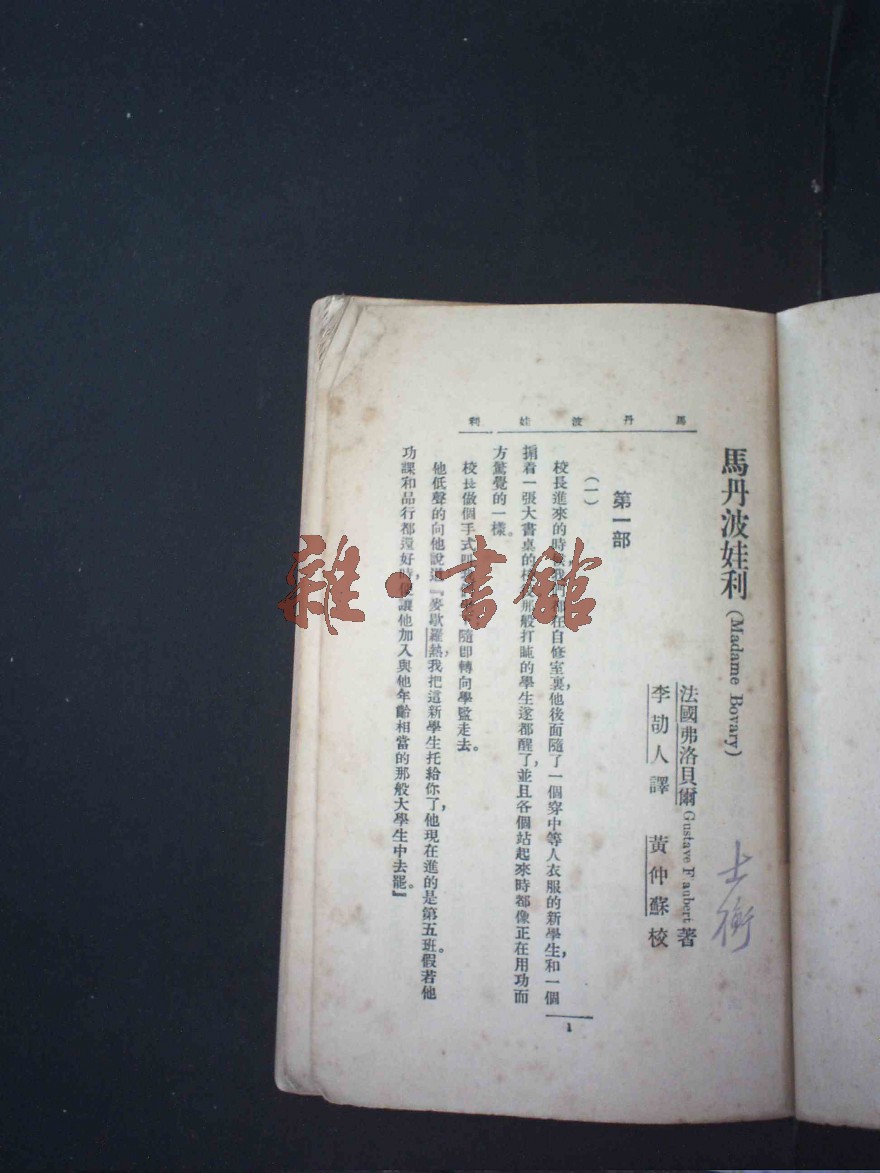 馬丹波娃利
馬丹波娃利(Madame Bovary)
法國弗洛貝爾Gustave Flaubert著
李劼人譯 黃仲蘇校
士衡
第一部
(一)
校長進來的時候,我們都在自修室裏,他後面隨了一個穿中等人衣服的新學生,和一個
捎着一張大書桌的校役。那般打盹的學生遂都醒了,並且各個站起來時都像正在用功而
方驚覺的一樣。
校長做個手式叫 隨即轉向學監走去。
他低聲的向他說道『麥歇羅熱,我把這新學生托給你了,他現在進的是第五班。假若他
功課和品行都還好時,便讓他加入與他年齡相當的那般大學生中去罷。』
1
雜·書館